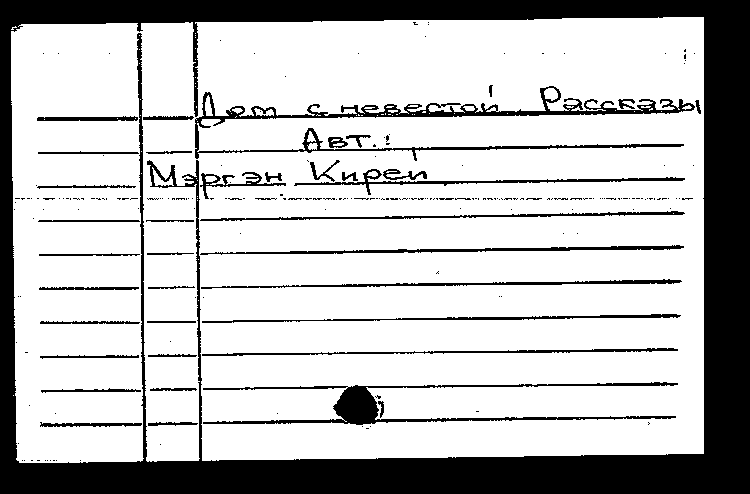 Дом с невестой. Рассказы
Авт.:
Мэргэн Кирей